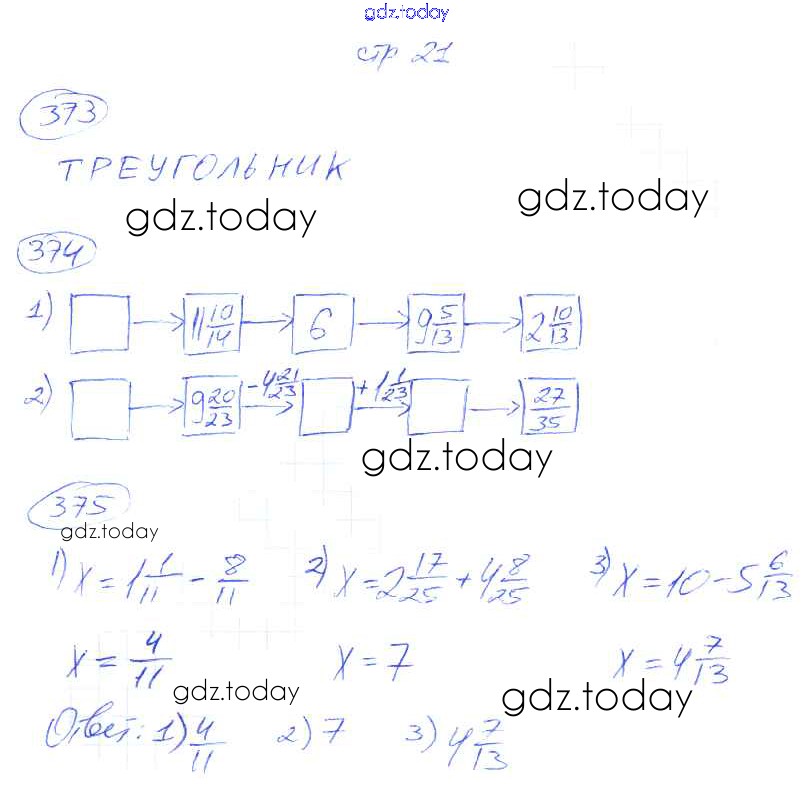 gdz.today
стр 21
373
ТРЕУГОЛЬНИК
gdz.today gdz.today
374
1) □ → 11 10/14 → 6 → 9 5/13 → 2 10/13
2) □ → 9 20/23 - 4 21/23 → □ + 1 1/23 → □ → 27/35
gdz.today
375
gdz.today
1) x = 1 1/11 - 8/11 2) x = 2 17/25 + 4 8/25 3) x = 10 - 5 6/13
x = 4/11 x = 7 x = 4 7/13
gdz.today gdz.today
Ответ: 1) 4/11 2) 7 3) 4 7/13